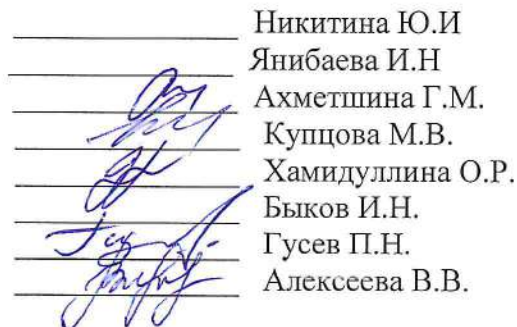 Никитина Ю.И
Янибаева И.Н
Ахметшина Г.М.
Купцова М.В.
Хамидуллина О.Р.
Быков И.Н.
Гусев П.Н.
Алексеева В.В.